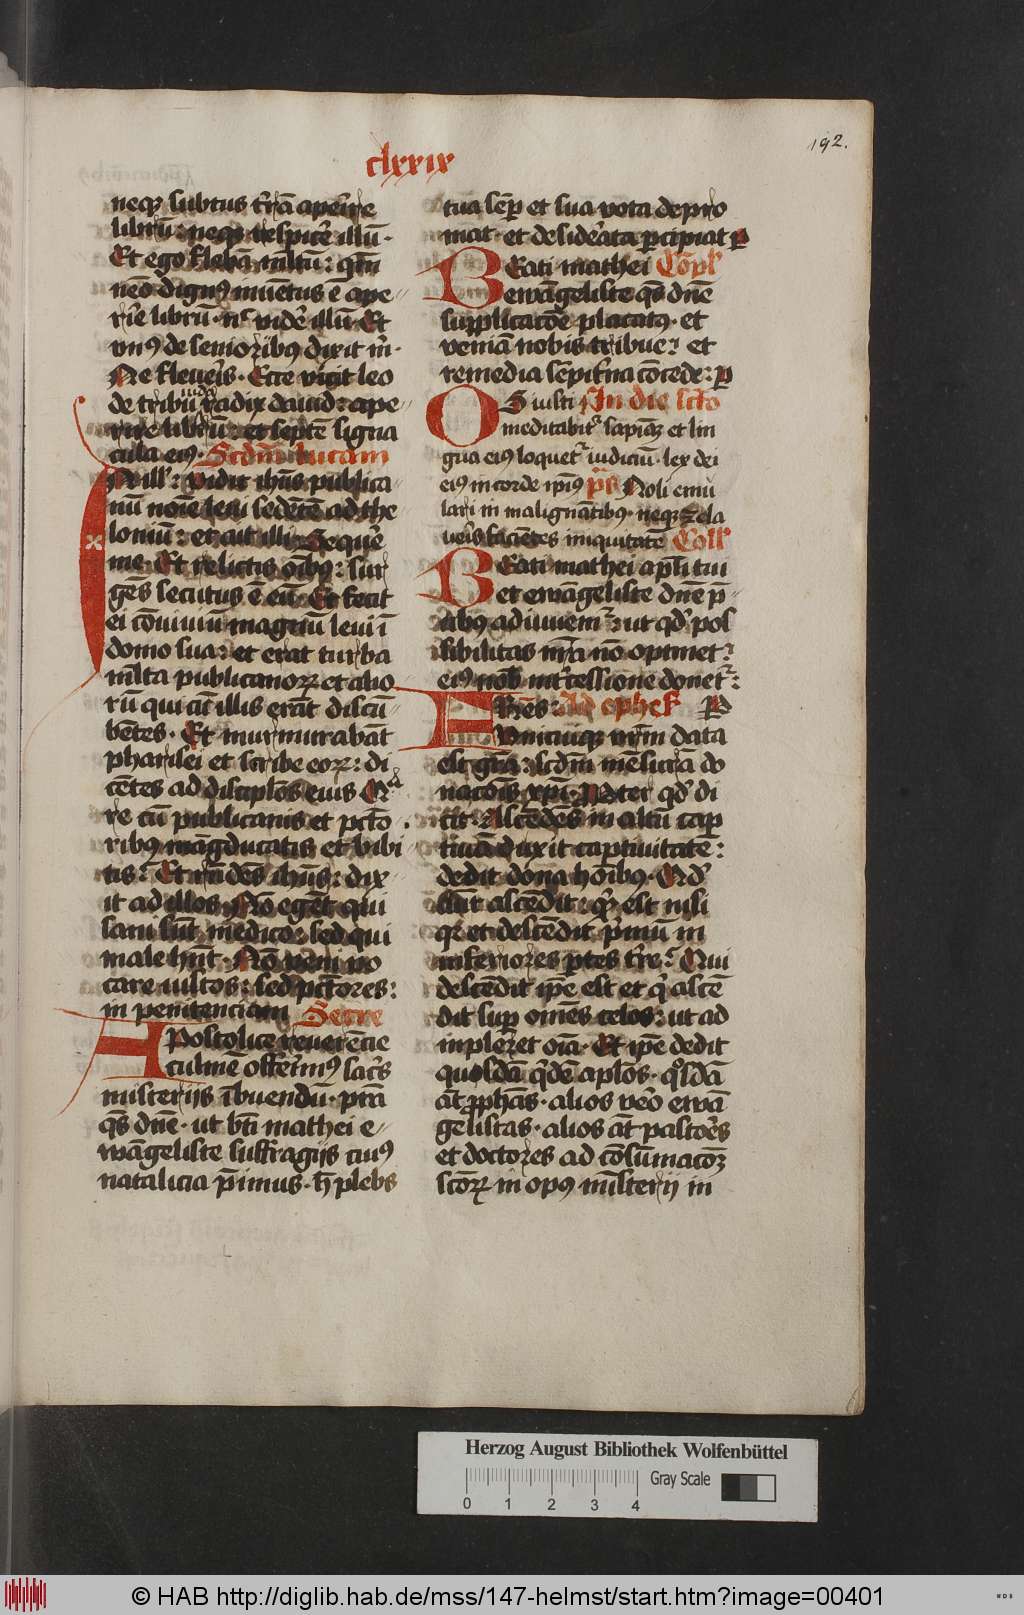 192.
clxxix
neqꝫ subtus t̾rā apeı̾re
librū: neqꝫ respicẽ illū·
Et ego flebā mltū: qm̄
nēo dignꝰ inuētus ē ape
rı̾e librū· nᶜ vidẽ illū· Et
vnꝰ de senioribꝰ dixit m̄·
Ne fleuẽis· Ecce vicit leo
de tribu iuda radix dauid: ape
rire librū: et septē signa
cula eiꝰ· Scdm̄ lucam
In ill': Vidit ihūs publica
nū noīe leui sedētē ad the
loniū: et ait illi· Seqũe
me· Et relictis oībꝰ: sur
gēs secutus ē eū· Et fecit
ei cōuiuiū magnū leui ī
domo sua: et erat turba
mlta publicanoꝝ et alio
rū qui cū illis erāt discū
bētes· Et murmurabāt
pharisei et scribe eoꝝ: di
cētes ad discipl̄os eius Qͣ
re cū publicanis et pcc̄to
ribꝰ māgducatis et bibi
tis: Et rn̄dēs ihūs: dix
it ad illos· Nō egēt qui
sani sūt medico: sed qui
male hn̄t· Nō veni vo
care iustos: sed pcc̄tores:
in penitenciam Secre
APostolice reuerēcie
culmē offeı̾mꝰ sac̾s
misteriis ı̄buendū· p̄tā
qs̄ dn̄e· ut bt̄i mathei e
wāgeliste suffragiis cuiꝰ
natalicia p̄imus· h̄ plebs
tua sēꝑ et sua vota depro
mat· et desideẽata ꝑcipiat ꝑ
BEati mathei Cōpl'
ewāgeliste qs̄ dn̄e
supplicacōe placatꝰ· et
veniā nobis tribue: et
remedia sēpit̾na cōcede: ꝑ
OS iusti In die sc̄to
meditabitʳ sapiaꝫ et lin
gua eiꝰ loquetʳ iudiciū· lex dei
eiꝰ in corde ip̄iꝰ ps Noli emu
lari in malignātibꝰ· neqꝫ zela
ueı̾s faciētes iniquitatē Coll'
BEati mathei apl̄i tui
et ewāgeliste dn̄e p̄
cibꝰ adiuuemʳ: ut qd' pos
sibilitas nr̄a nō optinet:
eiꝰ nob̄ int̾cessione donetʳ:
FRēs: Ad ephes ꝑ
Vnicuiqꝫ nr̄m data
est grā: scdm̄ mēsurā do
nacōis xp̄i· Propter qd' di
cit: Ascēdēs in altū cap
tiuā duxit captiuitatē:
dedit dona hōibꝰ· Qd'
aūt ascēdit: qͥd est nisi
qꝛ et descēdit p̾mū in
inferiores ꝑtes t̾re: Qui
descēdit ip̄e est et qͥ ascē
dit suꝑ omēs celos: ut ad
inpleẽet oīa· Et ip̄e dedit
quosdā qͥdē apl̄os· qͦsdā
āt ꝓphās· alios ṽo ewā
gelistas· alios āt pastoẽs
et doctores ad cōsūmacōꝫ
sc̄oꝝ in opꝰ mı̄sterij in
Herzog August Bibliothek Wolfenbüttel
Gray Scale
0 1 2 3 4
© HAB http://diglib.hab.de/mss/147-helmst/start.htm?image=00401